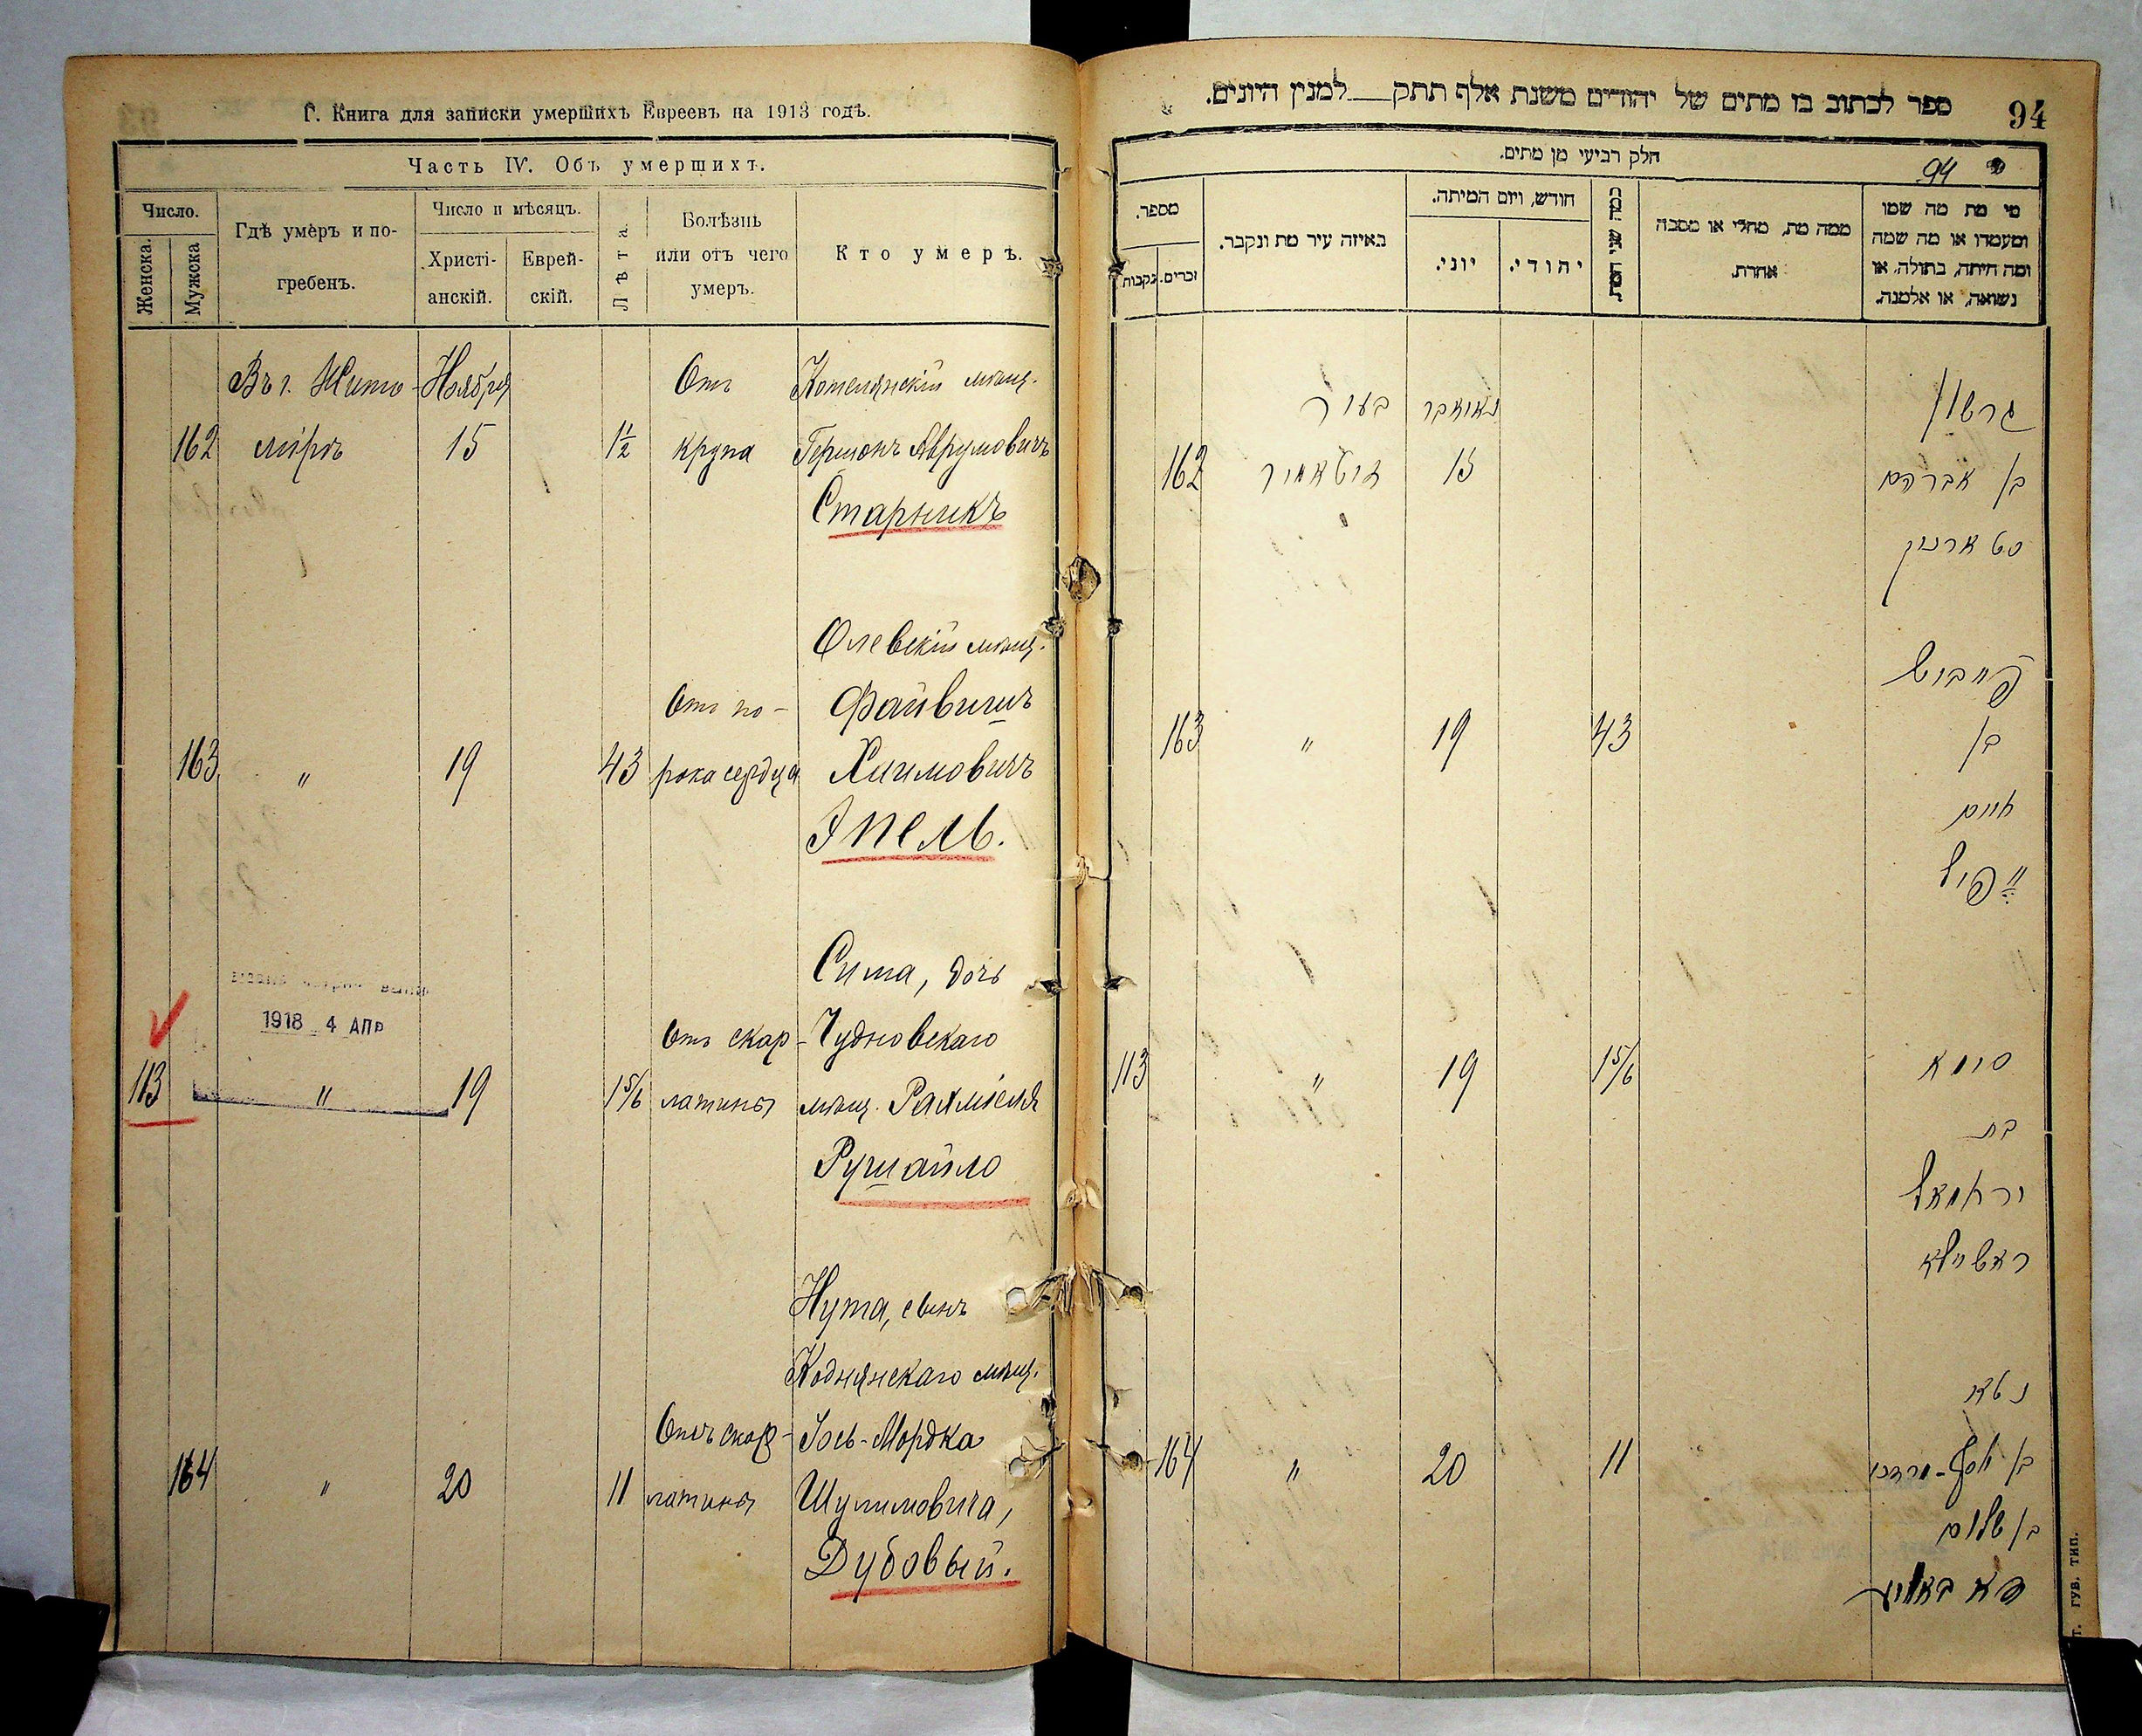 Г. Книга для записки умершихъ Евреевъ на 1913 годъ.
Часть IV. Объ умершихъ.
Число.
Женска.
Мужска
Гдѣ умеръ и по-
гребенъ.
Число и мѣсяцъ.
Христі-
анскій.
Еврей-
скій.
Лѣта
Болѣзнь
или отъ чего
умеръ.
Кто умеръ.
Въ г. Жито- Ноября Отъ Котелянскій мѣщ.
162 мірѣ 15 1½ крупа Гершонъ Аврумовичъ
Старникъ
Олевскій мѣщ.
Отъ по- Файвишъ
163 " 19 43 рока сердца Хаимовичъ
Эпель.
Сима, дочь
1918 4 АПР
Отъ скар- Чудновскаго
113 " 19 1 5/6 латины мѣщ. Рахміеля
Рушайло
Нута, сынъ
Коднянскаго мѣщ.
Отъ скар- Іось-Мордка
164 " 20 11 латины Шулимовича,
Дубовый.
ספר לכתוב בו מתים של יהודים משנת אלף תתק למנין היונים.
94
חלק רביעי מן מתים.
94
מספר.
נקבות
זכרים.
באיזה עיר מת ונקבר.
חודש, ויום המיתה.
יוני.
יהודי.
כמה שני המת.
ממה מת, מחלי או מסבה
אחרת.
מי מת מה שמו
ומעמדו או מה שמה
ומה היתה, בתולה, או
נשואה, או אלמנה.
בעיר נאואבר גרשון
162 זיטאמיר 15 בן אברהם
סטארניק
פייבוש
163 " 19 43 בן
חיים
עפיל
113 " 19 1 5/6 סימא
בת
ירחמאל
ראשיילא
נטא
164 " 20 11 בן יוסף-מרדכי
בן שלום
т. губ. тип.